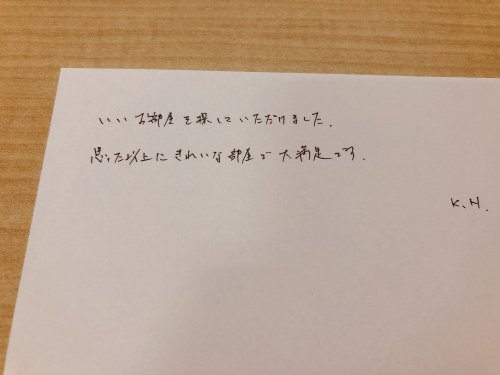 いいお部屋を探していただけました.
思った以上にきれいな部屋で大満足です.
K.H.